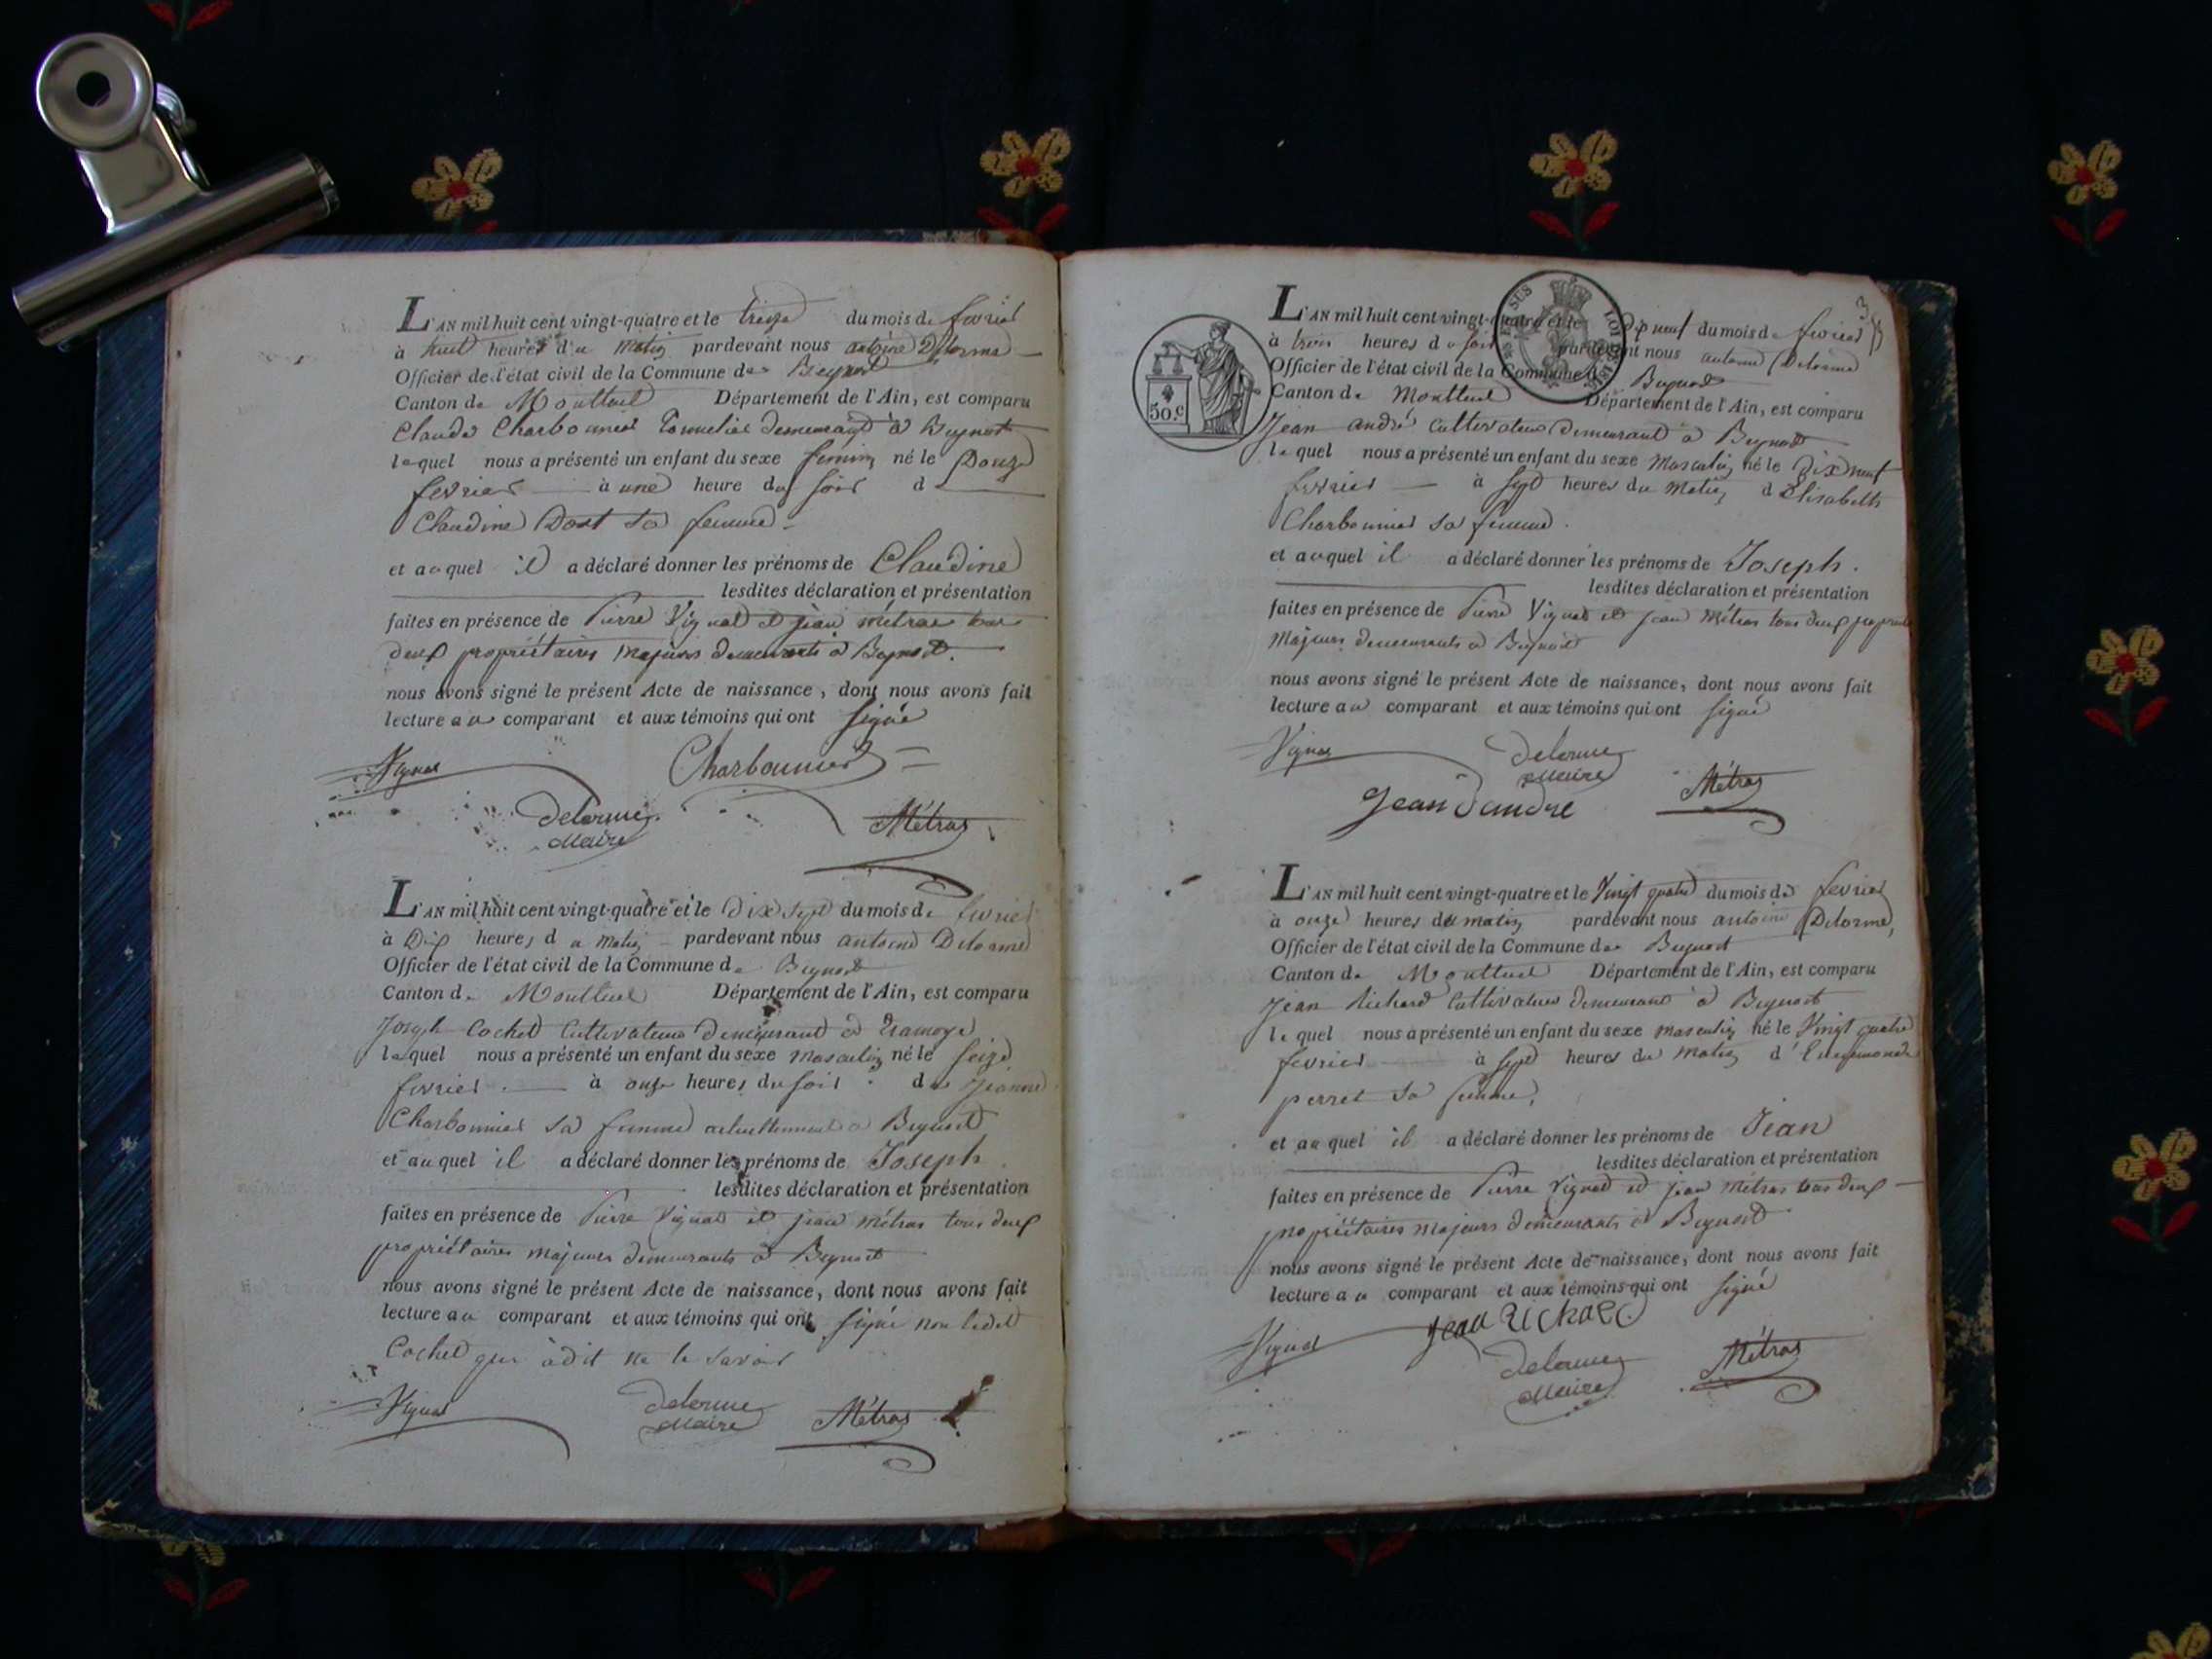 L'AN mil huit cent vingt-quatre et le treize du mois de fevrier
à huit heures du matin pardevant nous antoine Delorme
Officier de l'état civil de la Commune de Beynost
Canton de Montluel Département de l'Ain, est comparu
Claude Charbonnier Tonnelier demeurant à Beynost
lequel nous a présenté un enfant du sexe feminin né le Douze
fevrier à une heure du soir d
Claudine Dost sa femme
et auquel il a déclaré donner les prénoms de Claudine
lesdites déclaration et présentation
faites en présence de Pierre Vignat et jean métras tous
deux propriétaires majeurs demeurants à Beynost.
nous avons signé le présent Acte de naissance, dont nous avons fait
lecture au comparant et aux témoins qui ont signé
Vignat Charbonnier
Delorme Maire Métras
L'AN mil huit cent vingt-quatre et le dix sept du mois de fevrier
à Dix heures du matin pardevant nous antoine Delorme
Officier de l'état civil de la Commune de Beynost
Canton de Montluel Département de l'Ain, est comparu
Joseph Cochet Cultivateur demeurant à Tramoye
lequel nous a présenté un enfant du sexe masculin né le seize
fevrier à onze heures du soir de Jeanne
Charbonnier sa femme actuellement à Beynost
et auquel il a déclaré donner les prénoms de Joseph
lesdites déclaration et présentation
faites en présence de Pierre Vignat et jean métras tous deux
propriétaires majeurs demeurants à Beynost
nous avons signé le présent Acte de naissance, dont nous avons fait
lecture au comparant et aux témoins qui ont signé non ledit
Cochet qui à dit ne le savoir
Vignat Delorme Maire Métras
3
L'AN mil huit cent vingt-quatre et le Dix neuf du mois de fevrier
à trois heures du soir pardevant nous antoine Delorme
Officier de l'état civil de la Commune d Beynost
Canton de Montluel Département de l'Ain, est comparu
50.c
Jean andré Cultivateur demeurant à Beynost
lequel nous a présenté un enfant du sexe Masculin né le Dix neuf
fevrier à sept heures du matin d Elisabeth
Charbonnier sa femme.
et auquel il a déclaré donner les prénoms de Joseph.
lesdites déclaration et présentation
faites en présence de Pierre Vignat et jean Métras tous deux
majeurs demeurants à Beynost
nous avons signé le présent Acte de naissance, dont nous avons fait
lecture au comparant et aux témoins qui ont signé
Vignat Delorme Maire
Jean andre Métras
L'AN mil huit cent vingt-quatre et le Vingt quatre du mois de fevrier
à onze heures du matin pardevant nous antoine Delorme,
Officier de l'état civil de la Commune de Beynost
Canton de Montluel Département de l'Ain, est comparu
Jean Richard Cultivateur demeurant à Beynost
lequel nous a présenté un enfant du sexe masculin né le Vingt quatre
fevrier à sept heures du matin d'
perret sa femme,
et auquel il a déclaré donner les prénoms de Jean
lesdites déclaration et présentation
faites en présence de Pierre Vignat et jean Métras tous deux
propriétaires majeurs demeurants à Beynost
nous avons signé le présent Acte de naissance, dont nous avons fait
lecture au comparant et aux témoins qui ont signé
Vignat Jean Richard
Delorme Maire Métras